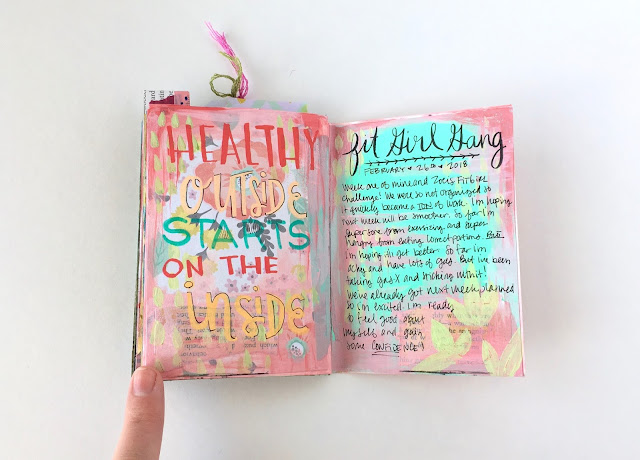 HEALTHY
OUTSIDE
STARTS
ON THE
INSIDE
fit Girl Gang
FEBRUARY 26th 2018
Week one of mine and Zoe's FitGirl
challenge! We were so not organized so
it quickly became a TON of work. I'm hoping
next week will be smoother. So far I'm
super sore from exercising and super
hungry from eating 1 correct portions. But
I'm hoping it'll get better. So far I'm
achy and have lots of gas. But I've been
taking gas X and sticking with it!
We've already got next week planned
so I'm excited. I'm ready
to feel good about
myself and gain
some CONFIDENCE!